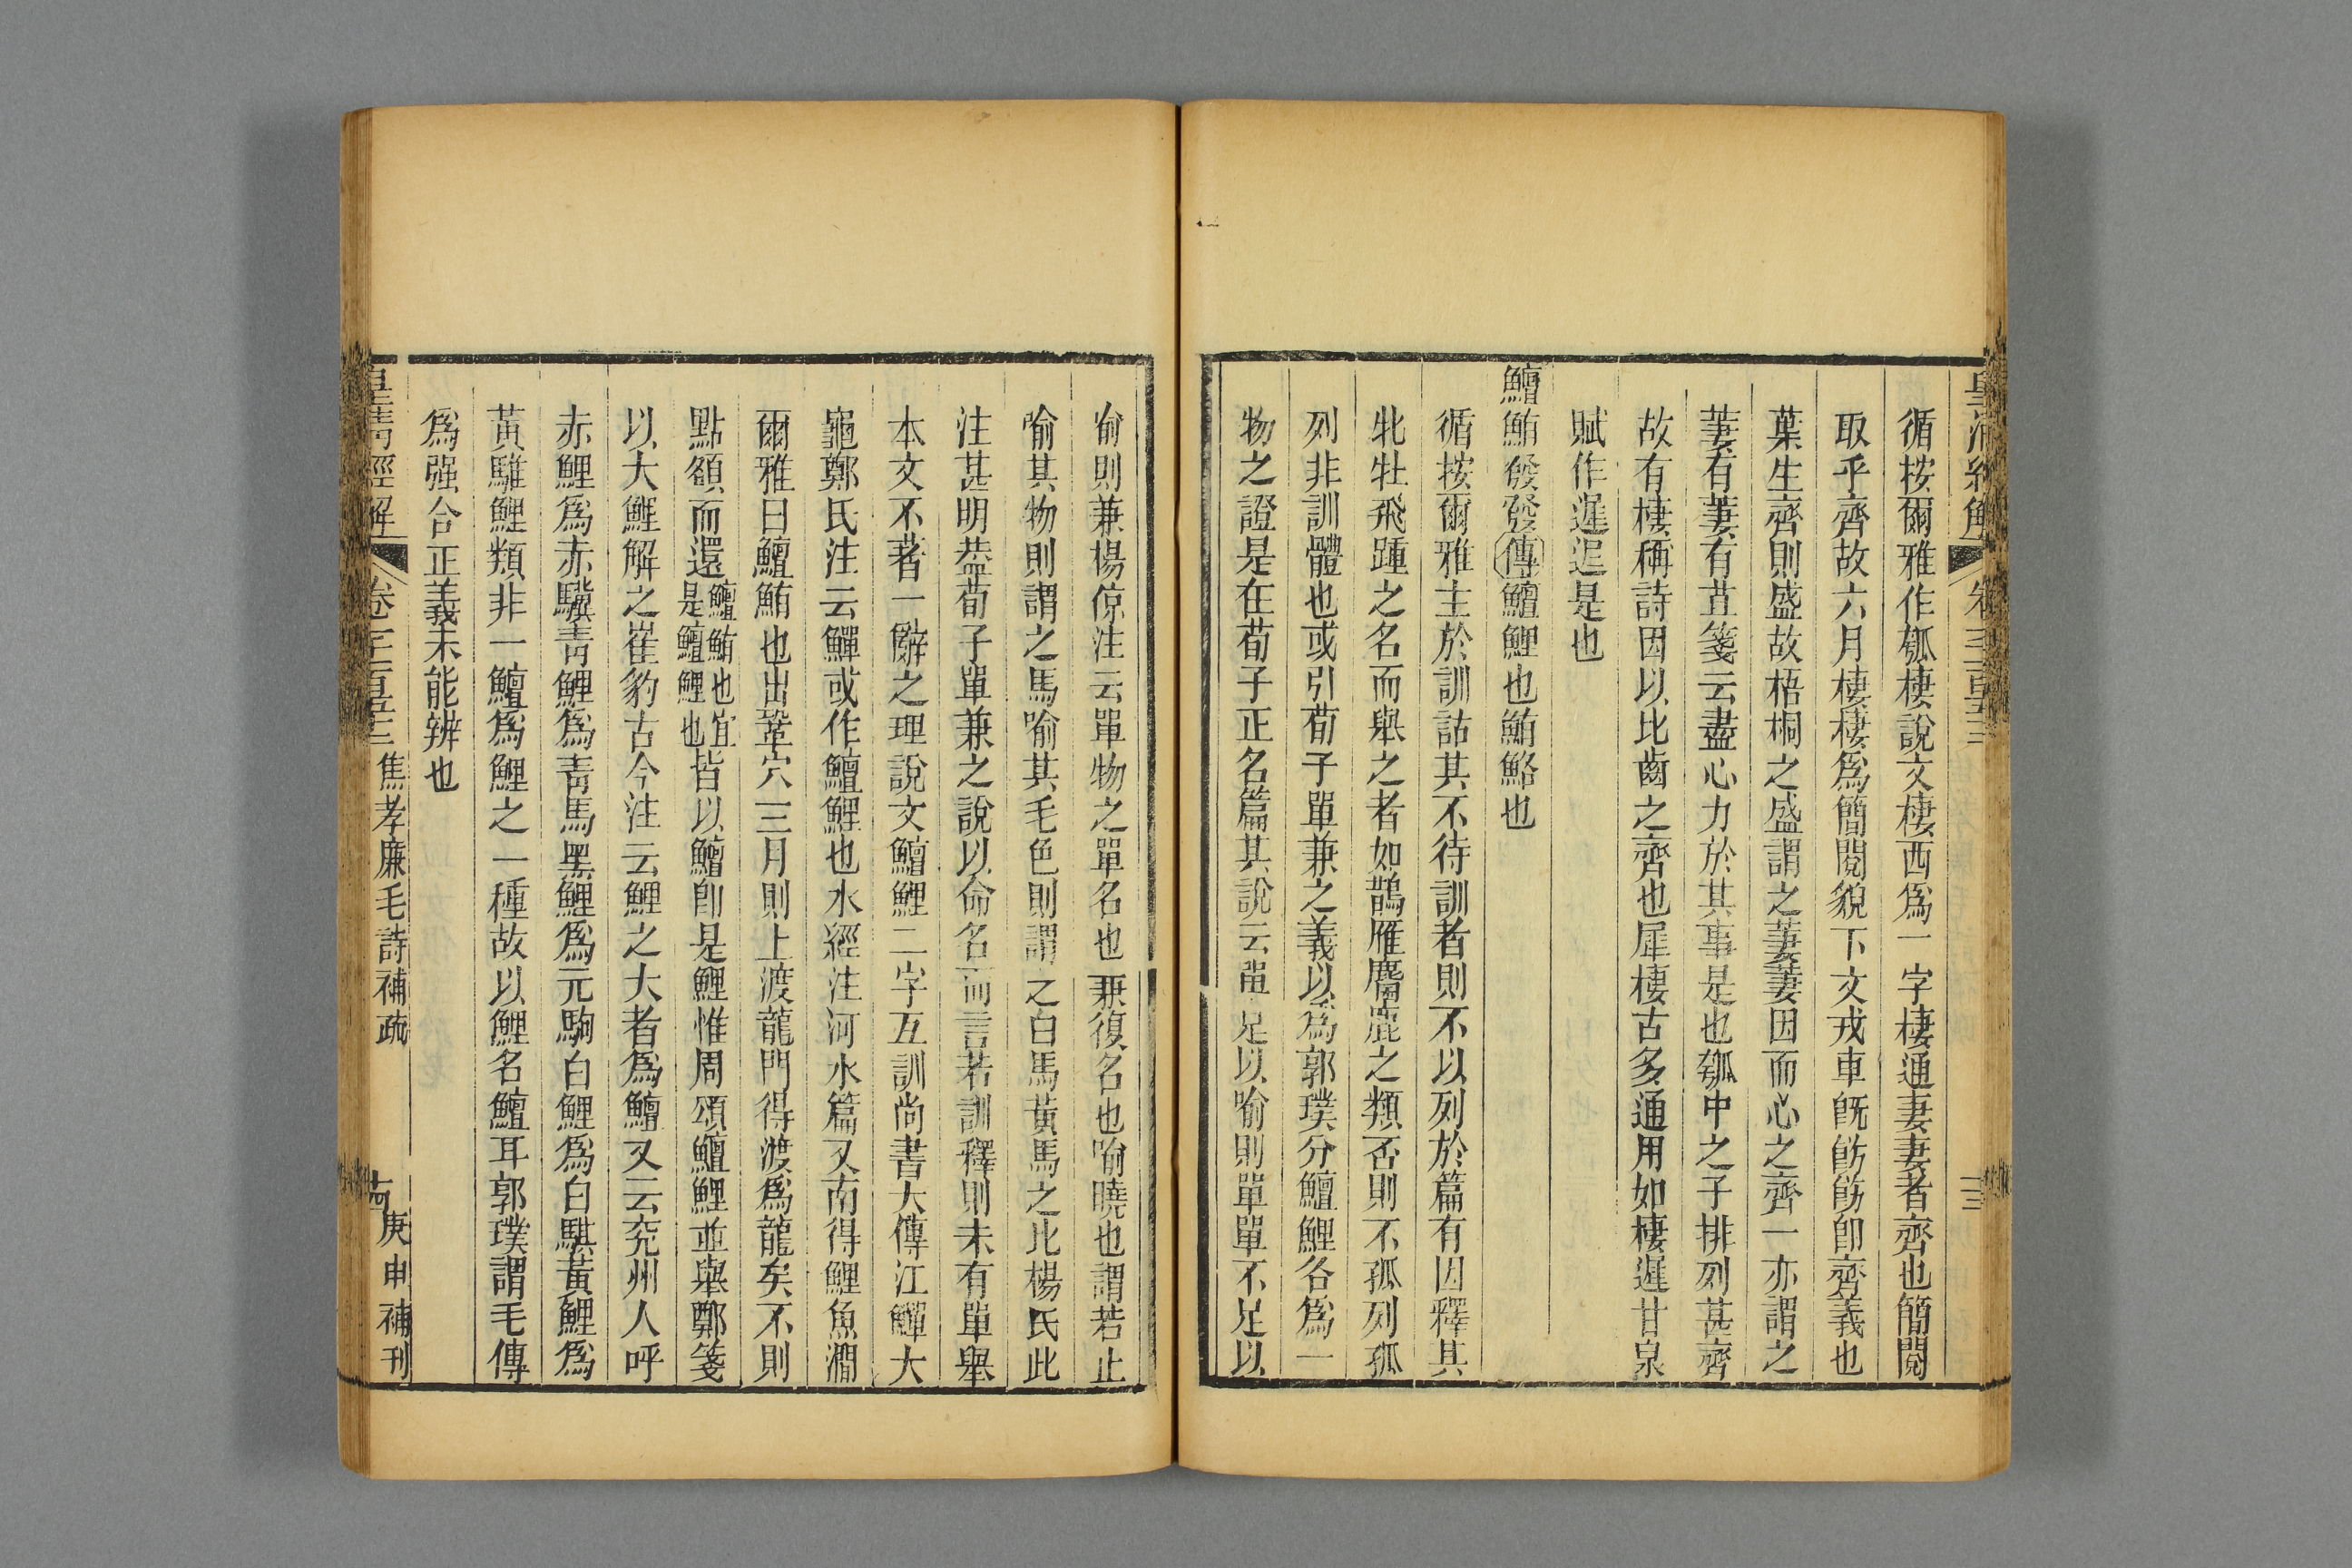 循按爾雅作瓠棲說文棲西爲一字棲通妻妻者齊也簡閱
取乎齊故六月棲棲爲簡閱貌下文戎車旣飭飭卽齊義也
葉生齊則盛故梧桐之盛謂之萋萋因而心之齊一亦謂之
萋有萋有苴箋云盡心力於其事是也瓠中之子排列甚齊
故有棲稱詩因以比齒之齊也犀棲古多通用如棲遲甘泉
賦作遲迟是也
鱣鮪發發傳鱣鯉也鮪鮥也
循按爾雅主於訓詁其不待訓者則不以列於篇有因釋其
牝牡飛踵之名而舉之者如鵲雁麕鹿之類否則不孤列孤
列非訓體也或引荀子單兼之義以爲郭璞分鱣鯉各爲一
物之證是在荀子正名篇其說云單足以喻則單單不足以
喻則兼楊倞注云單物之單名也兼復名也喻曉也謂若止
喻其物則謂之馬喻其毛色則謂之白馬黃馬之比楊氏此
注甚明葢荀子單兼之說以命名而言若訓釋則未有單舉
本文不著一辭之理說文鱣鯉二字互訓尚書大傳江鱓大
龜鄭氏注云鱓或作鱣鯉也水經注河水篇又南得鯉魚澗
爾雅曰鱣鮪也出鞏穴三月則上渡龍門得渡爲龍矣不則
點額而還鱣鮪也宜是鱣鯉也皆以鱣卽是鯉惟周頌鱣鯉並舉鄭箋
以大鯉解之崔豹古今注云鯉之大者爲鱣又云兖州人呼
赤鯉爲赤驥靑鯉爲靑馬黑鯉爲元駒白鯉爲白騏黃鯉爲
黃騅鯉類非一鱣爲鯉之一種故以鯉名鱣耳郭璞謂毛傳
爲强合正義未能辨也
皇淸經解 焦孝廉毛詩補疏 庚申補刊